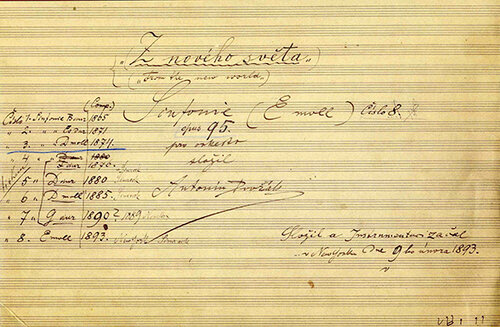 „Z nového světa“
(„From the new world.“)
Sinfonie (E moll) Číslo 8.
opus 95.
pro orkestr
složil
Antonín Dvořák
(Comp.)
Číslo 1. Sinfonie 1865
„ 2. „ 1871
„ 3. „ D moll 1874.
„ 4
„ 5 „ D dur 1880
„ 6 „ D moll 1885.
„ 7 „ G dur 1890 ? 1889
„ 8. E moll 1893.
Složil a Instrumentovat začal
v New Yorku Dne 9ho února 1893.